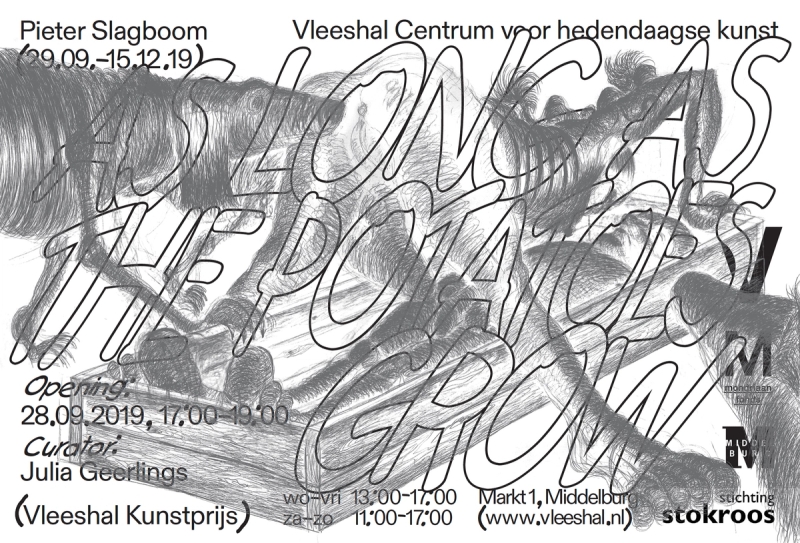 Pieter Slagboom
(29.09.–15.12.19)
Vleeshal Centrum voor hedendaagse kunst
AS LONG AS
THE POTATOES
GROW
Opening:
28.09.2019, 17:00–19:00
Curator:
Julia Geerlings
(Vleeshal Kunstprijs)
wo–vri 13:00–17:00
za–zo 11:00–17:00
Markt 1, Middelburg
(www.vleeshal.nl)
V
M
mondriaan
fonds
M
MIDDEL
BURG
stichting
stokroos